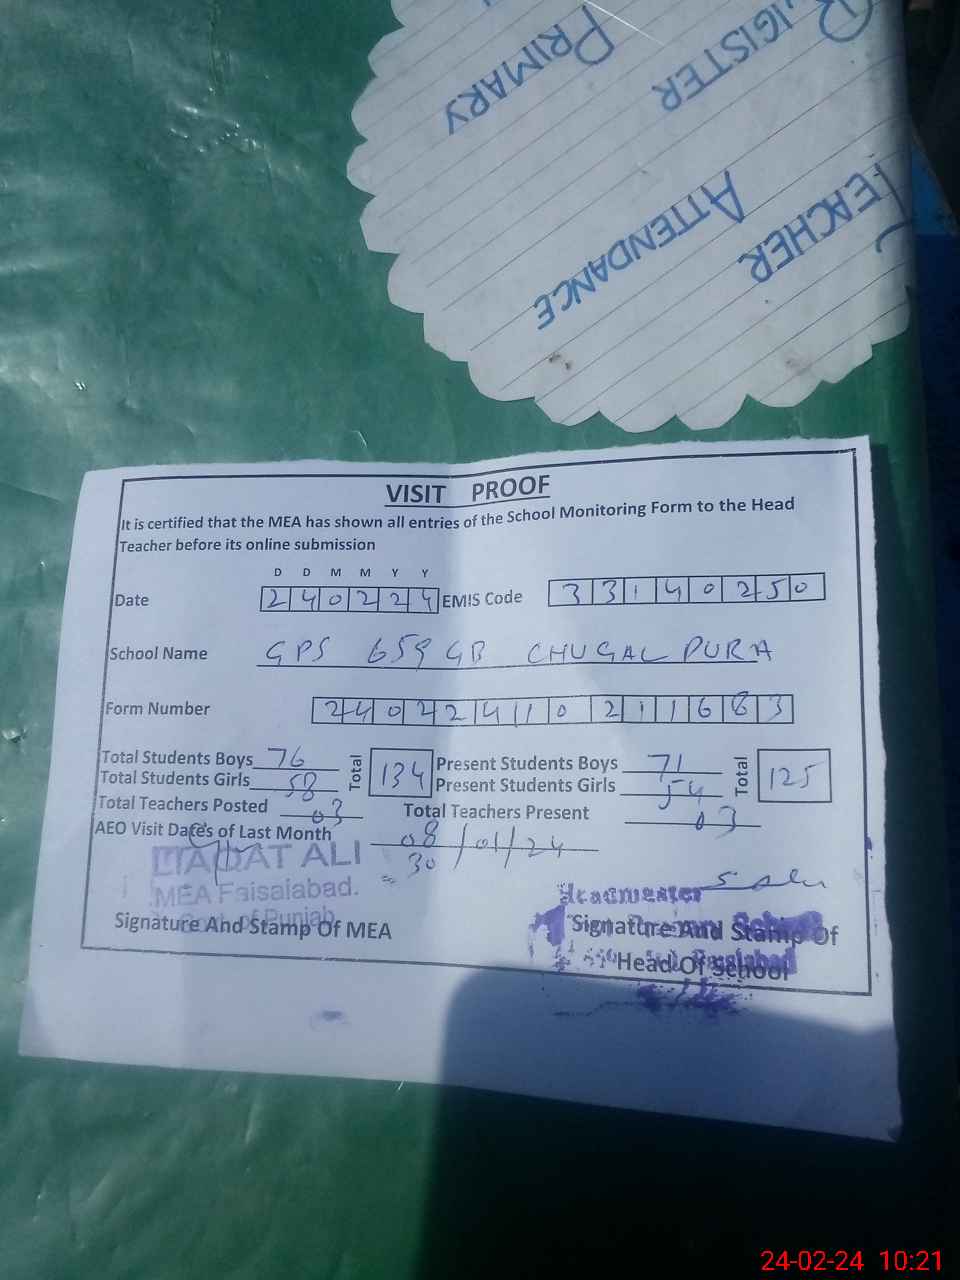 PRIMARY
REGISTER
ATTENDANCE
TEACHER
VISIT PROOF
It is certified that the MEA has shown all entries of the School Monitoring Form to the Head
Teacher before its online submission
D D M M Y Y
Date 240224 EMIS Code 33140250
School Name GPS 659 GB CHUGAL PURA
Form Number 24022410211683
Total Students Boys 76 Total 134 Present Students Boys 71 Total 125
Total Students Girls 58 Present Students Girls 54
Total Teachers Posted 03 Total Teachers Present 03
AEO Visit Dates of Last Month 08/01/24
30
LIAQAT ALI
MEA Faisalabad.
Govt of Punjab
Headmaster
Signature And Stamp Of MEA
Signature And Stamp Of
Head Of School
24-02-24 10:21